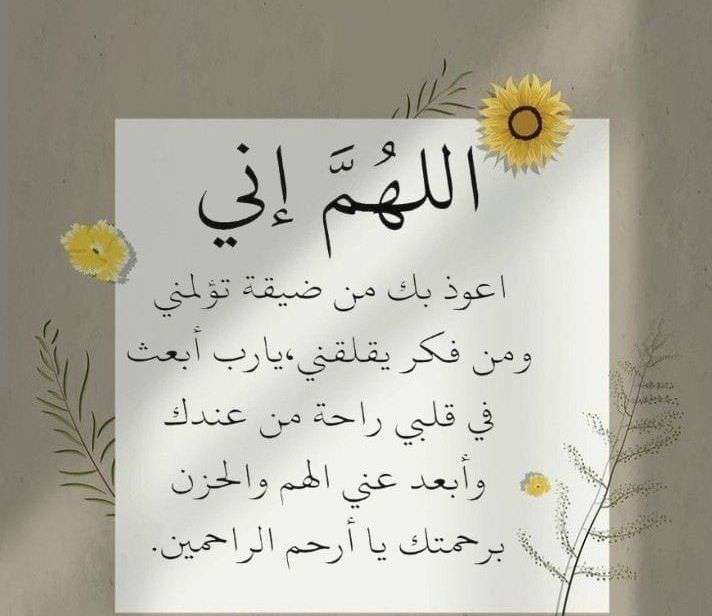 اللهُمَّ إني
اعوذ بك من ضيقة تؤلمني
ومن فكر يقلقني،يارب أبعث
في قلبي راحة من عندك
وأبعد عني الهم والحزن
برحمتك يا أرحم الراحمين.